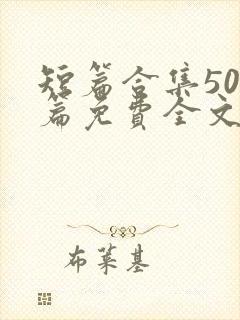 短篇合集50
篇免费全文
布莱基